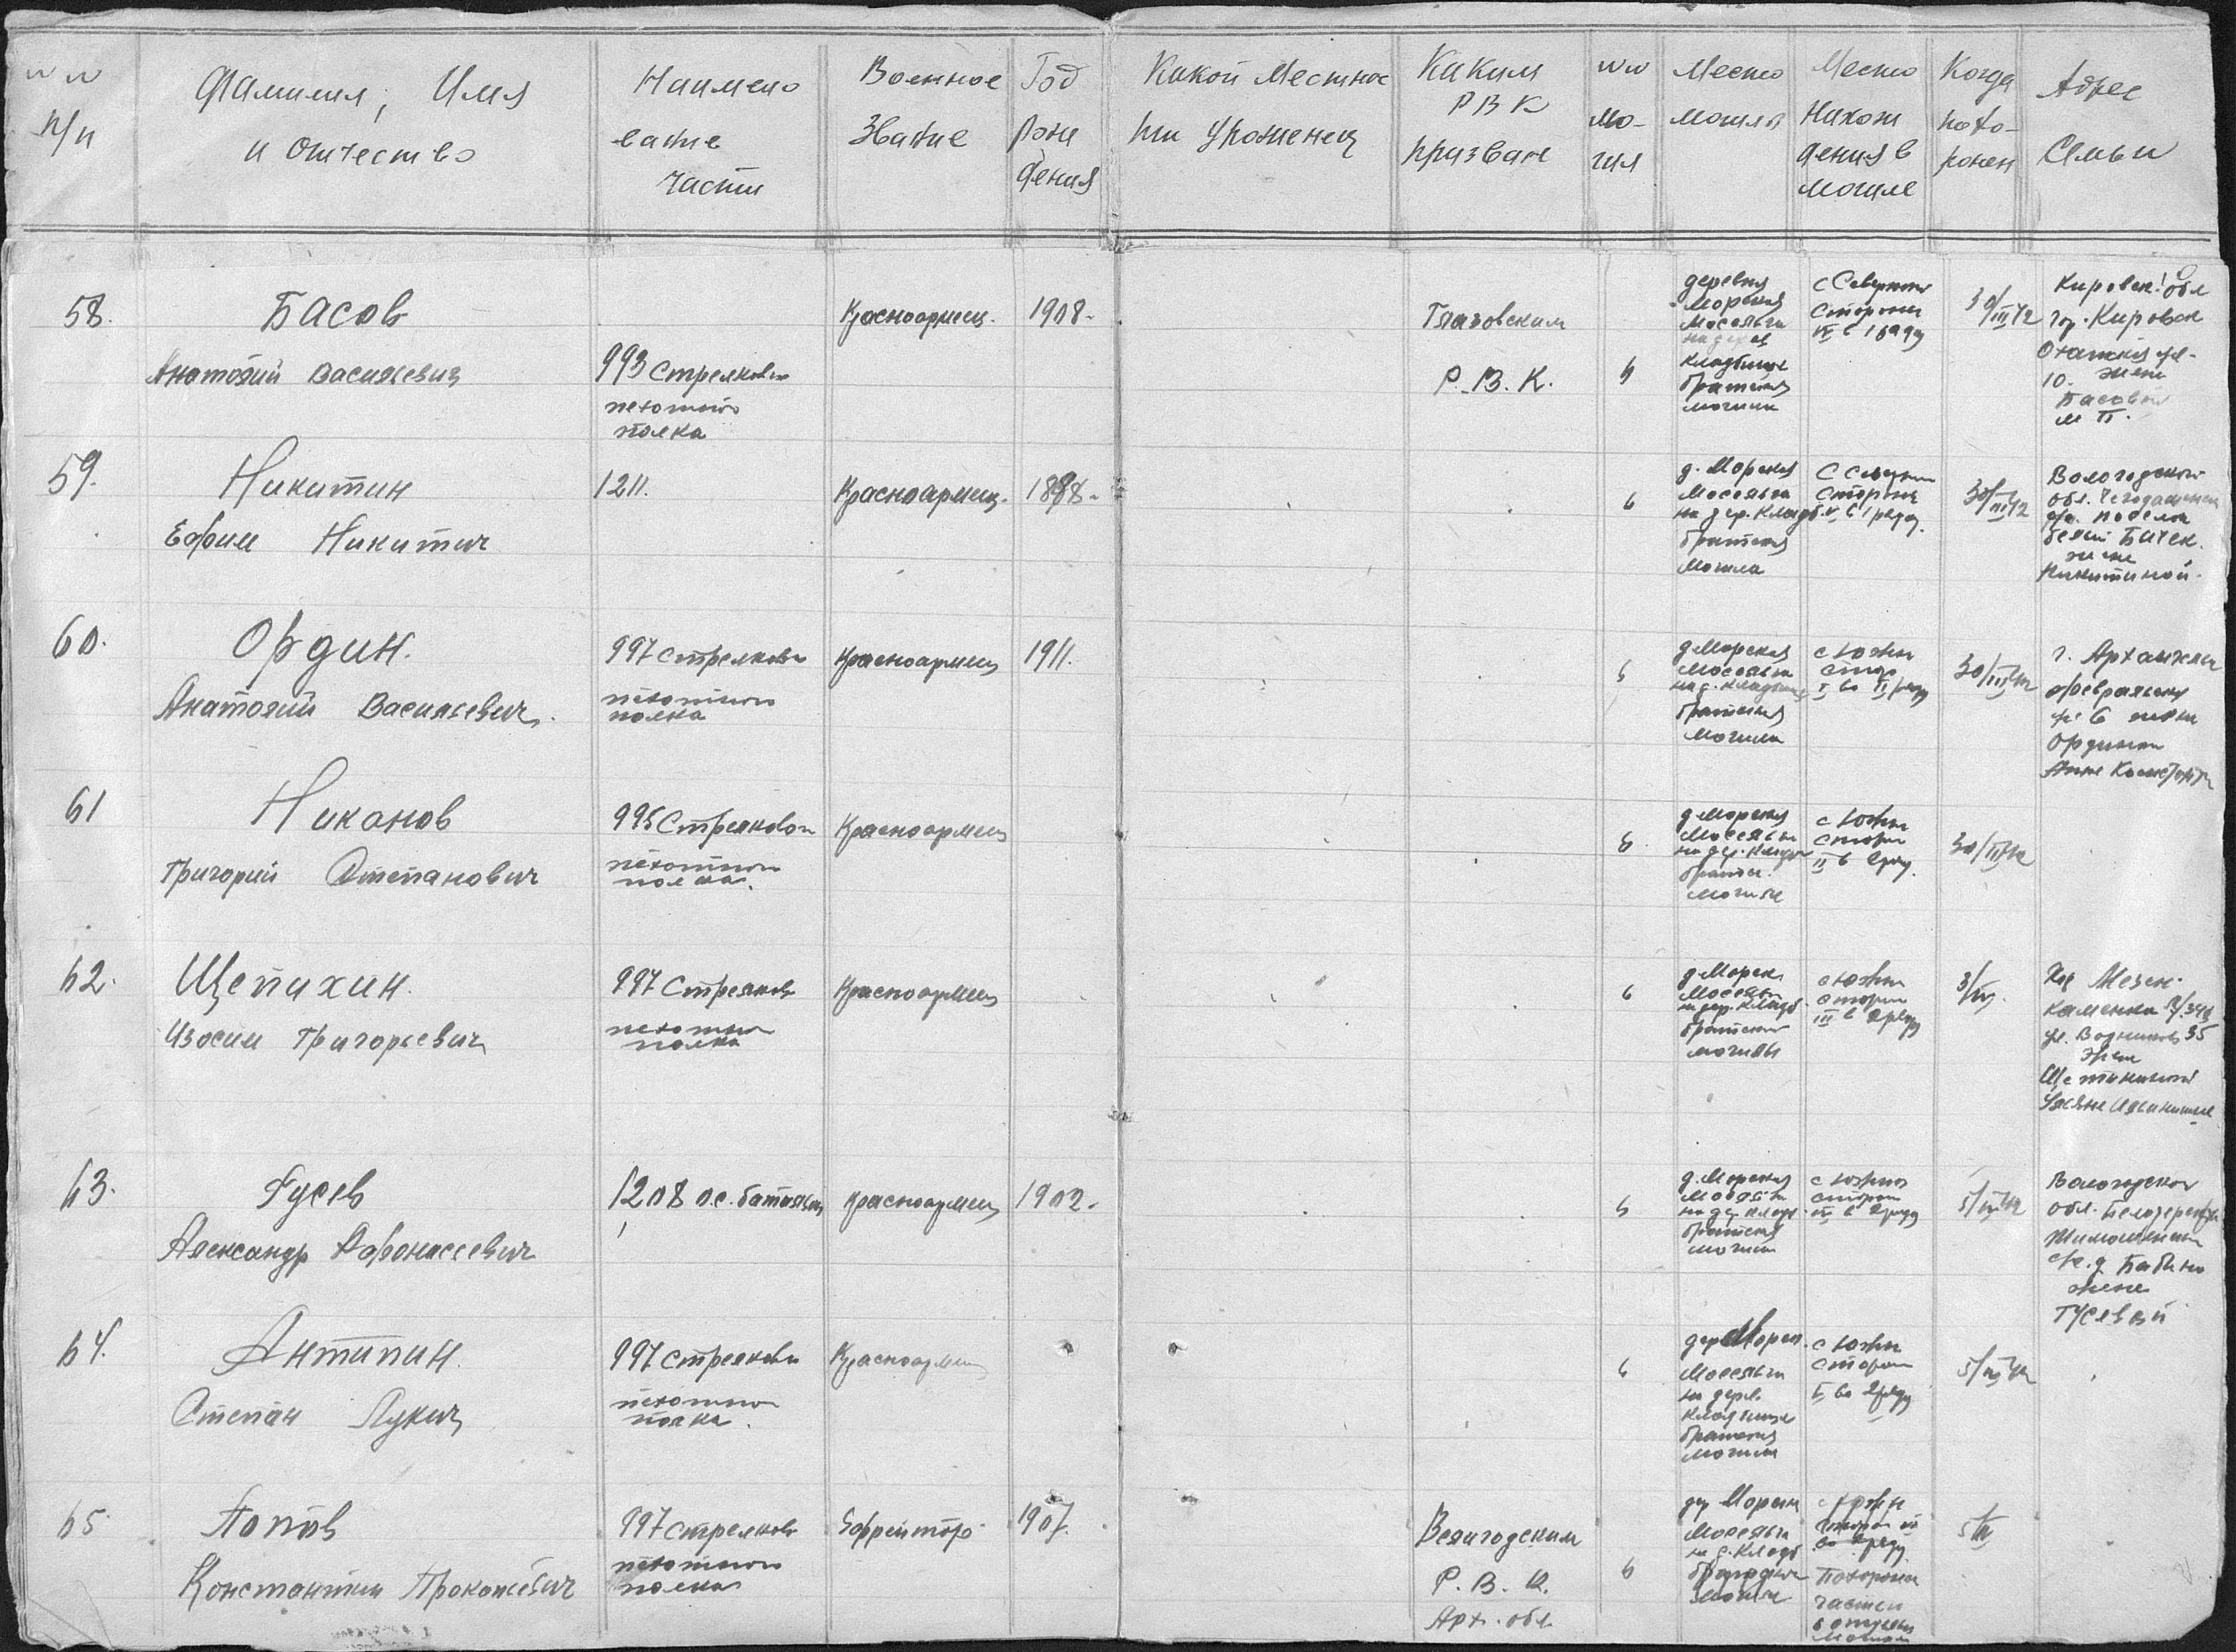 №№ п/п
Фамилия, Имя и Отчество
Наименование части
Военное Звание
Год рождения
Какой Местности Уроженец
Каким РВК призван
№№ могил
Место могилы
Место Нахождения в могиле
Когда похоронен
Адрес Семьи
58.
Басов
Анатолий Васильевич
993 Стрелково
пехотного
полка
Красноармеец.
1908.
Глазовским
Р.В.К.
6
деревня
Морская
Масельга
кладбище
братская
могила
с Северной
Стороны
в 1 ряду
30/III 42
Кировск. обл
гор. Кировск
10. жене
Басовой
М П.
59.
Никитин
Ефим Никитич
1211.
Красноармеец.
1898.
6
д. Морская
Масельга
на дер. кладб.
братская
могила
С Северн
Стороны
в 1 ряду.
30/III 42
Вологодской
обл.
жене
Никитиной.
60.
Ордин.
Анатолий Васильевич.
997 стрелково
пехотного
полка
Красноармеец
1911.
6
д Морская
Масельга
на д. кладбище
братская
могила
с южн
стор
I во II ряду
30/III 42
г. Архангельск
ул. 6 жене
Ординой
Анне
61
Никонов
Григорий Степанович
995 Стрелково
пехотного
полка.
Красноармеец
6
д Морская
Масельга
на дер. кладб
братск.
могиле
с Южн
сторон
II в 2 ряду.
30/III 42
62.
Щепихин.
Изосим Григорьевич
997 Стрелково
пехотного
полка
Красноармеец
6
д Морск.
Масельга
на дер. кладб
братской
могилы
с южн
сторон
III в 2 ряду
3/IV.
Мезен.
Каменка
35
жене
Ульяне
63.
Гусев
Александр Афонасьевич
1208 о.с. батальон
Красноармеец
1902.
6
д. Морская
Масельга
на дер кладб.
братская
могила
с южной
сторон
в 2 ряду
Вологодской
обл.
с/с. д Бабино
жене
Гусевой
64.
Антипин.
Степан Лукич
997 стрелково
пехотного
полка.
Красноармеец
6
дер Морск.
Масельга
на дерев.
кладбище
братская
могила
с южн
сторон
во 2 ряду
65
Попов
Константин Прокопьевич
997 стрелково
пехотного
полка
Ефрейтор
1907.
Вельгодским
Р.В.К.
Арх. обл
6
дер Морская
Масельга
на д. кладб
могиле
с южн
сторон
во 2 ряду.
Похоронен